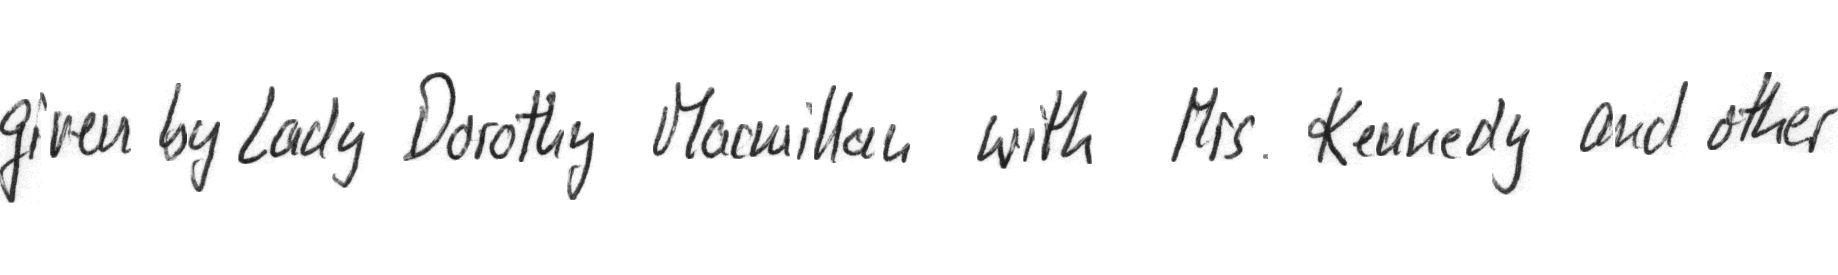 given by Lady Dorothy Macmillan with Mrs. Kennedy and other